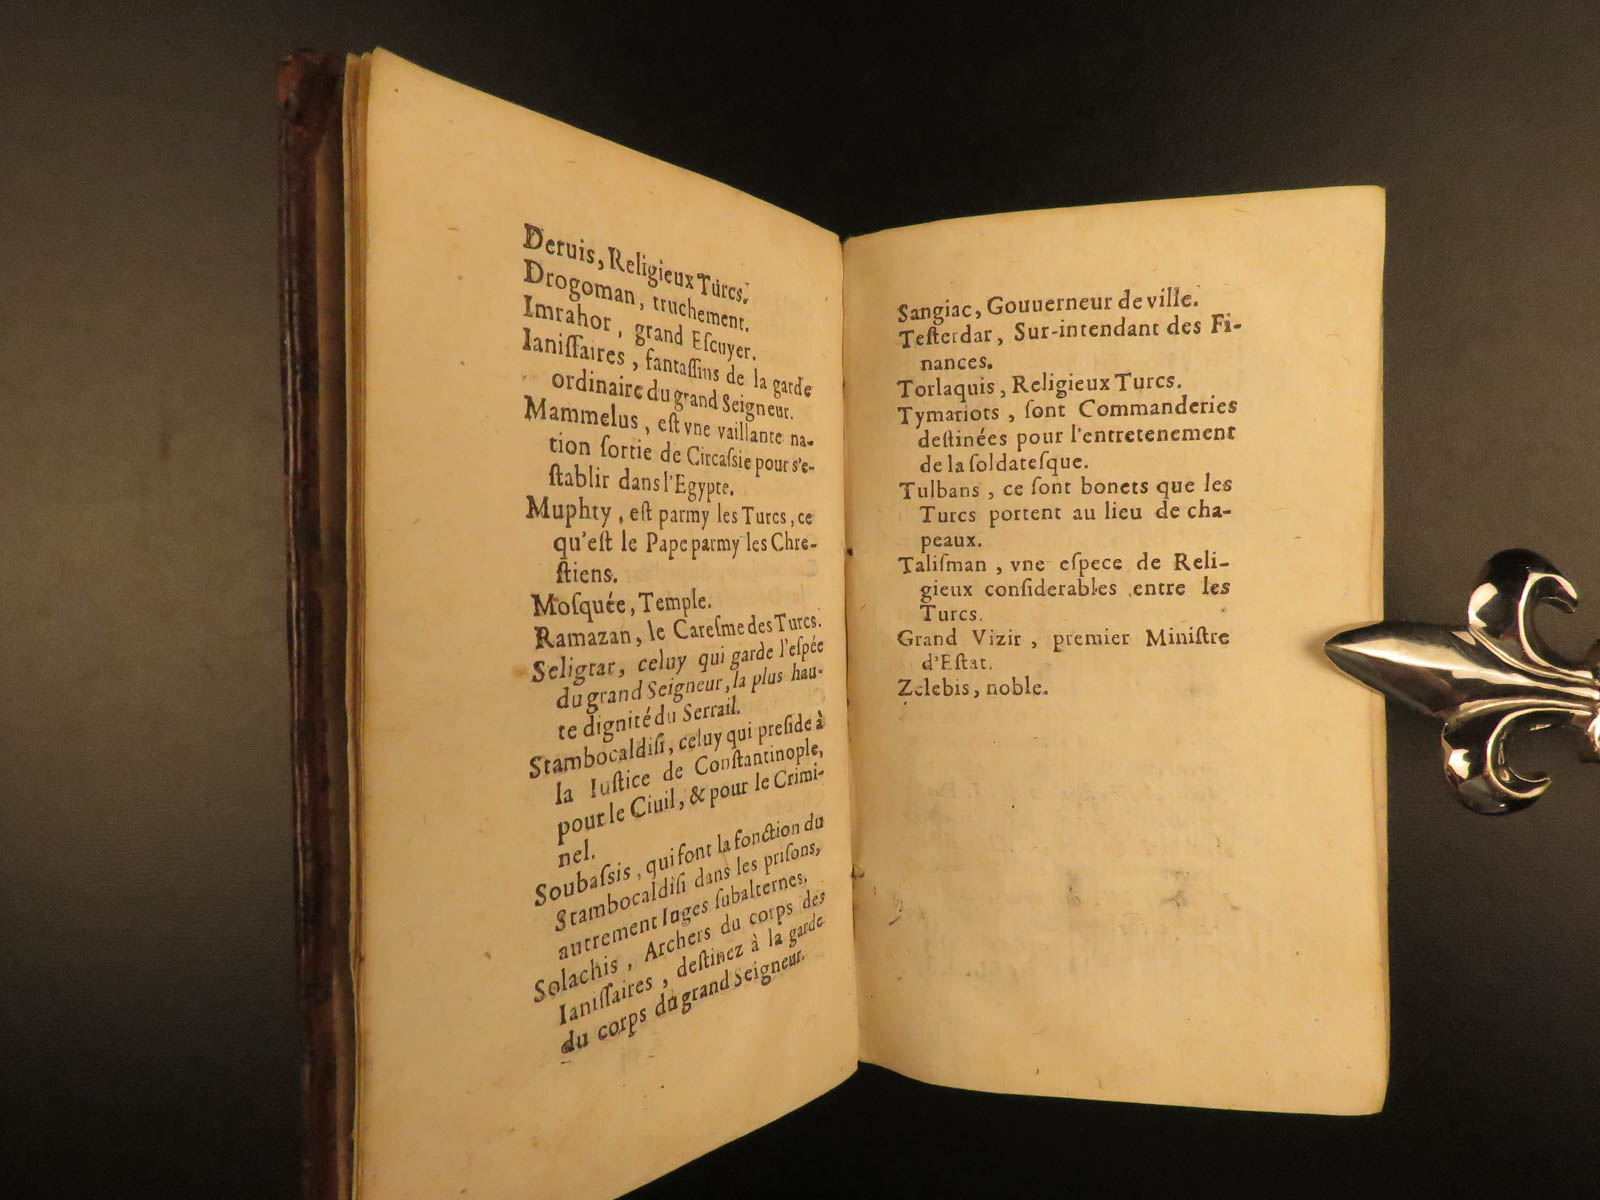 Deruis, Religieux Turcs.
Drogoman, truchement.
Imrahor, grand Eſcuyer.
Ianiſſaires, fantaſſins de la garde
ordinaire du grand Seigneur.
Mammelus, eſt vne vaillante na-
tion ſortie de Circaſſie pour s'e-
ſtablir dans l'Egypte.
Muphty, eſt parmy les Turcs, ce
qu'eſt le Pape parmy les Chre-
ſtiens.
Moſquée, Temple.
Ramazan, le Careſme des Turcs.
Seligtar, celuy qui garde l'eſpée
du grand Seigneur, la plus hau-
te dignité du Serrail.
Stambocaldiſi, celuy qui preſide à
la Iuſtice de Conſtantinople,
pour le Ciuil, & pour le Crimi-
nel.
Soubaſsis, qui font la fonction du
Stambocaldiſi dans les priſons,
autrement Iuges ſubalternes.
Solachis, Archers du corps des
Ianiſſaires, deſtinez à la garde
du corps du grand Seigneur.
Sangiac, Gouuerneur de ville.
Teſterdar, Sur-intendant des Fi-
nances.
Torlaquis, Religieux Turcs.
Tymariots, ſont Commanderies
deſtinées pour l'entretenement
de la ſoldateſque.
Tulbans, ce ſont bonets que les
Turcs portent au lieu de cha-
peaux.
Taliſman, vne eſpece de Reli-
gieux conſiderables entre les
Turcs.
Grand Vizir, premier Miniſtre
d'Eſtat.
Zelebis, noble.